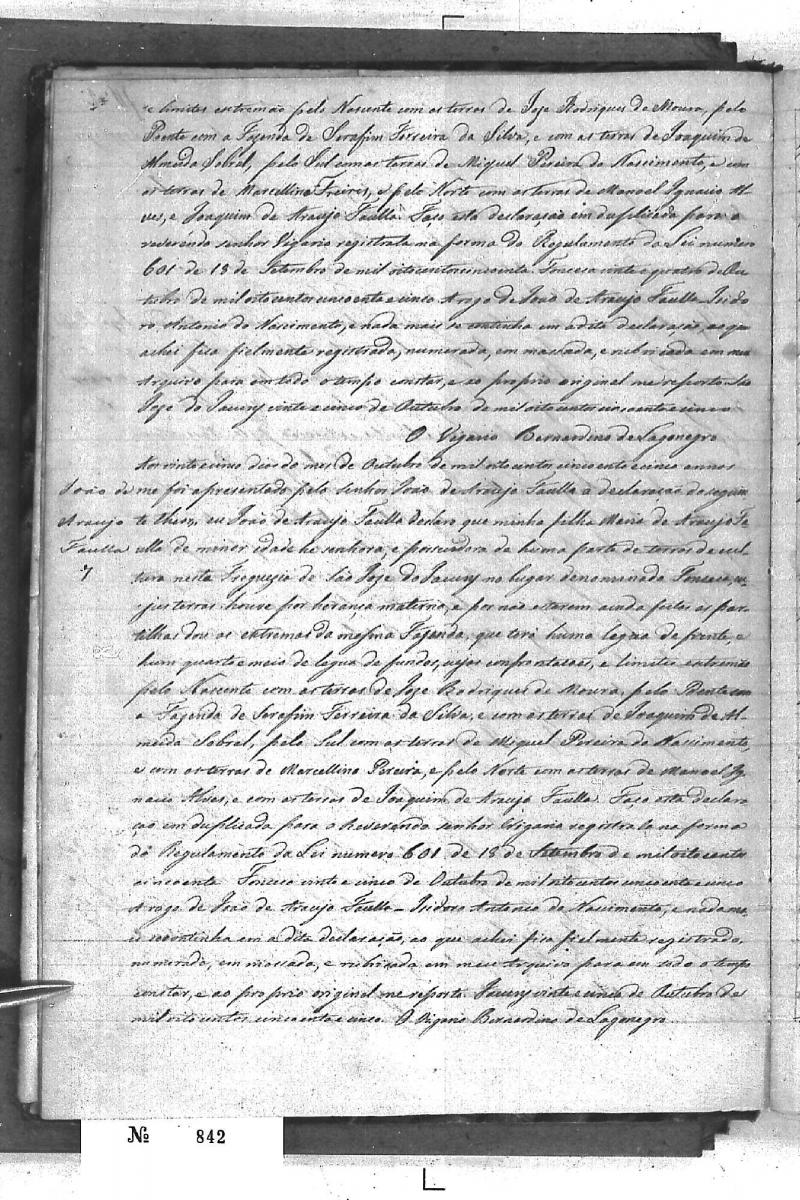 e limites extremão pelo Nascente com as terras de Jose Rodrigues de Moura, pelo
Poente com a Fazenda de Serafim Ferreira da Silva, e com as terras de Joaquim de
Almeida Sobral, pelo Sul com as terras de Miguel Pereira do Nascimento, e com
as terras de Marcellino Freires, e pelo Norte com as terras de Manoel Ignacio Al-
ves, e Joaquim de Araujo Faulla. Faço esta declaração em duplicada para o
reverendo senhor Vigario registrala na forma do Regulamento da Lei numero
601 de 18 de Setembro de mil oitocentos cincoenta. Fonceca vinte e quatro de Ou-
tubro de mil oito centos cincoenta e cinco Arogo de João de Araujo Faulla - Isido-
ro Antonio do Nascimento, e nada mais se continha em a dita declaração, ao que
achei fica fielmente registrada, numerada, em massada, e rubricada em meu
Arquivo para em todo o tempo constar, e ao proprio original me reporto São
Jose do Jacury vinte e cinco de Outubro de mil oito centos cincoenta e cinco
O Vigario Bernardino de Lagonegro
Aos vinte e cinco dias do mes de Outubro de mil oito centos cincoenta e cinco annos
João de
Araujo
Faulla
7
me foi apresentado pelo senhor João de Araujo Faulla a declaração do seguin
te theor, eu João de Araujo Faulla declaro que minha filha Maria de Araujo Fa
ulla de minor idade he senhora, e possuidora de huma parte de terras de cul
tura nesta Freguezia de São Jose do Jacury no lugar denominado Fonceca, cu-
jas terras houve por herança materna, e por não estarem ainda feitas as par-
tilhas dou as extremas da mesma Fazenda, que terá huma legoa de frente, e
hum quarto e meio de legua de fundos, cujas confrontacões, e limites extremão
pelo Nascente com as terras de Joze Rodrigues de Moura, pelo Poente com
a Fazenda de Serafim Ferreira da Silva, e com as terras de Joaquim de Al-
meida Sobral, pelo Sul com as terras de Miguel Pereira do Nascimento,
e com as terras de Marcellino Pereira, e pelo Norte com as terras de Manoel Ig-
nacio Alves, e com as terras de Joaquim de Araujo Faulla. Faço esta declara
ção em duplicada para o Reverendo senhor Vigario registrala na forma
do Regulamento da Lei numero 601 de 18 de Setembro de mil oito centos
cincoenta Fonceca vinte e cinco de Outubro de mil oito centos cincoenta e cinco
Arogo de João de Araujo Faulla - Isidoro Antonio do Nascimento, e nada ma-
is se continha em a dita declaração, ao que achei fica fielmente registrado,
numerado, em massada, e rubricada em meu Arquivo para em todo o tempo
constar, e ao proprio original me reporto Jacury vinte e cinco de Outubro de
mil oito centos cincoenta e cinco. O Vigario Bernardino de Lagonegro
№ 842